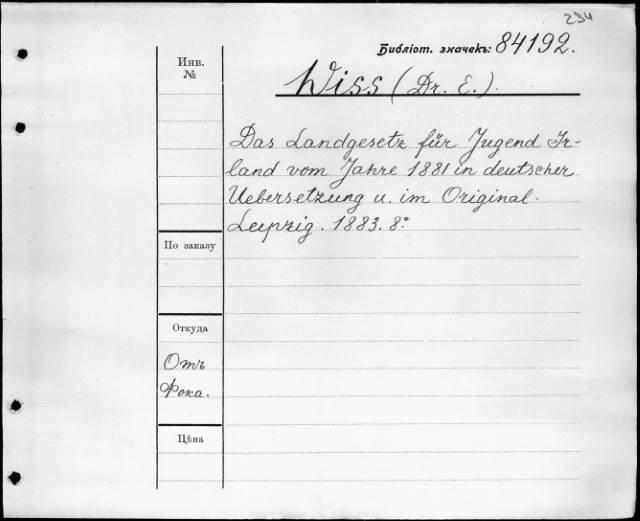 234
Библіот. значекъ: 84192.
Инв.
№
Wiss (Dr. E.).
Das Landgesetz für Jugend Ir-
land vom Jahre 1881 in deutscher
Uebersetzung u. im Original.
Leipzig. 1883. 8°
По заказу
Откуда
Отъ
Фока.
Цѣна